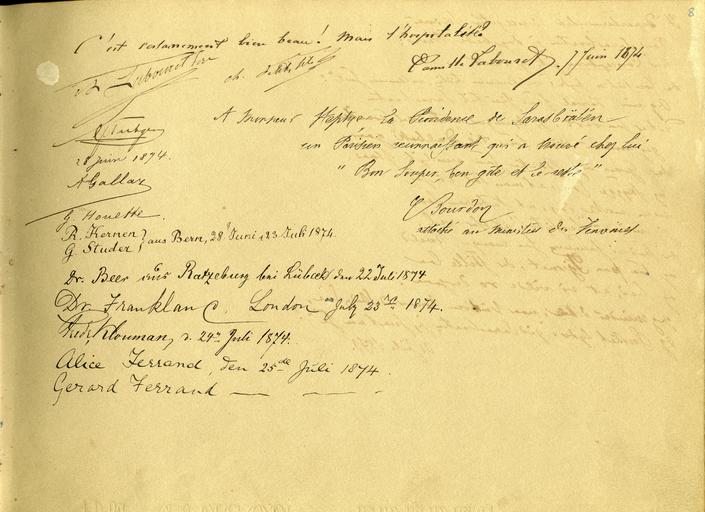 8
C'est vraiment bien beau! mais l'hospitalité
Camille Labouret, 7 Juin 1874
Labouret
A Monsieur Heftye la Providence de Sarabråten
un Parisien reconnaissant qui a trouvé chez lui
28 Juin 1874.
" Bon souper, bon gîte et le reste "
A Gallay
E Bourdon
attaché au ministère des Finances
G. Houette.
R. Kernen
G Studer } aus Bern, 28 Juni, 23 Juli 1874.
Dr. Beer aus Ratzeburg bei Lübeck den 22 Juli 1874
Dr. Frankland. London July 23rd 1874.
Klouman, d. 24de Juli 1874.
Alice Ferrand, den 25de Juli 1874.
Gerard Ferrand — — -